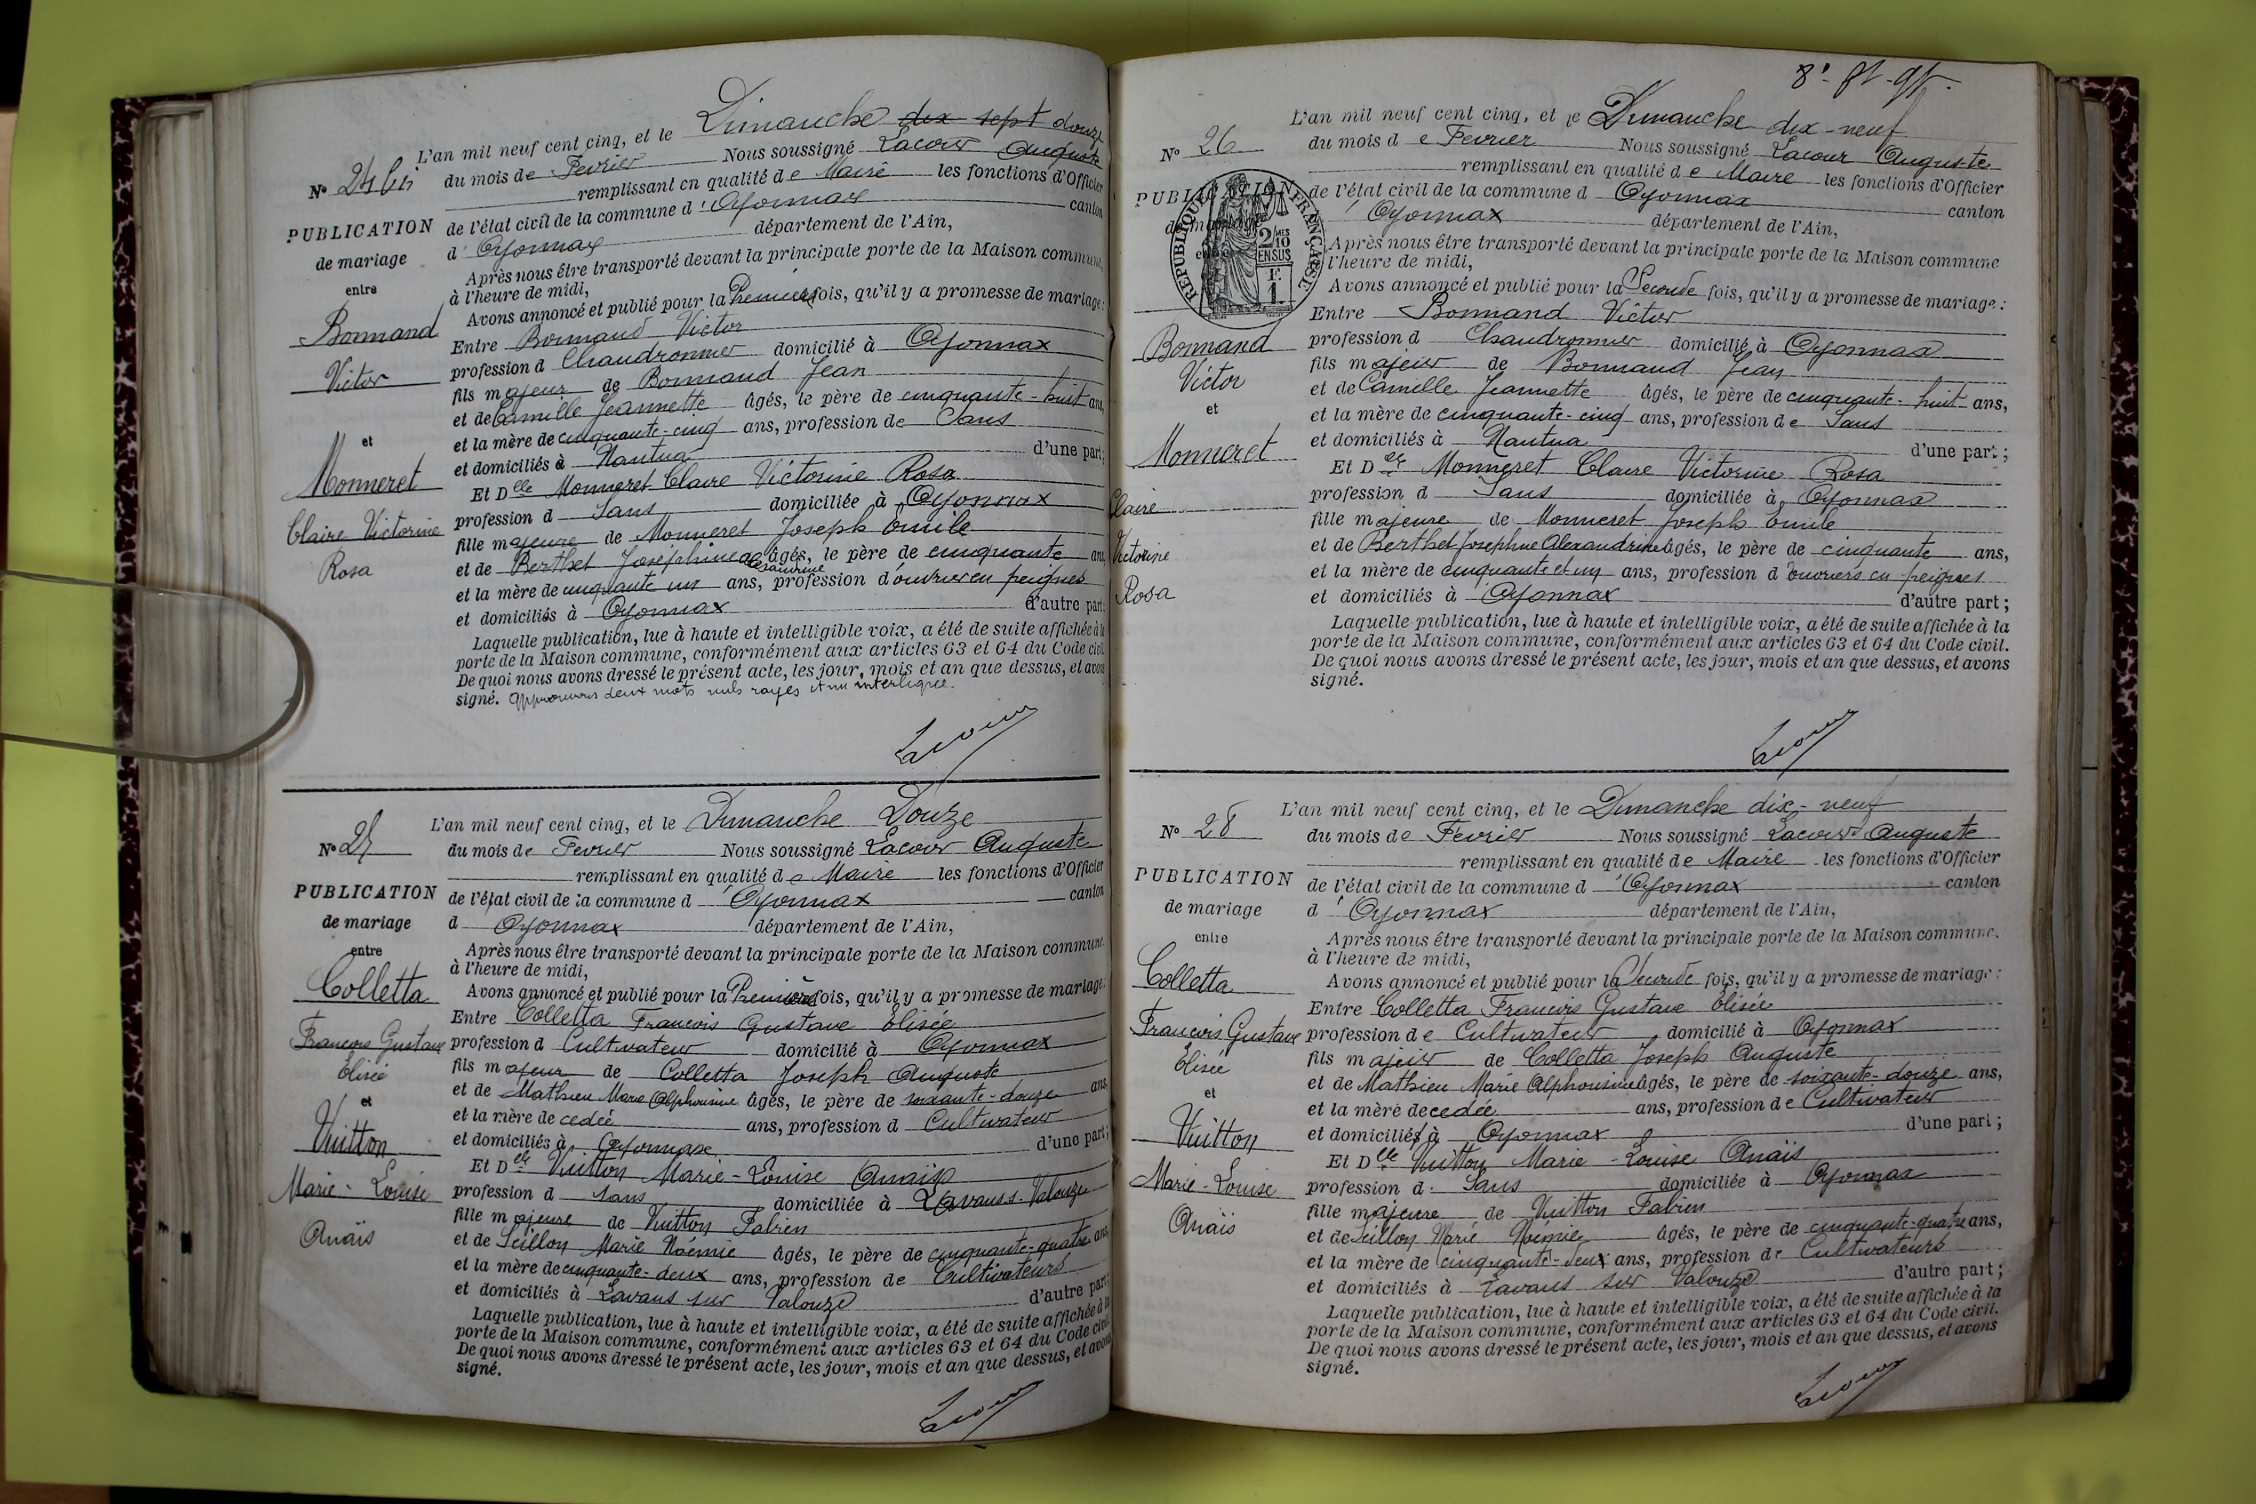 L'an mil neuf cent cinq, et le Dimanche dix sept douze
N° 24 bis du mois de Fevrier Nous soussigné Lacour Auguste
remplissant en qualité de Maire les fonctions d'Officier
PUBLICATION de l'état civil de la commune d'Oyonnax canton
de mariage d'Oyonnax département de l'Ain,
entre Après nous être transporté devant la principale porte de la Maison commune,
à l'heure de midi,
Avons annoncé et publié pour la Première fois, qu'il y a promesse de mariage:
Bonnand Entre Bonnand Victor
Victor profession d Chaudronnier domicilié à Oyonnax
fils majeur de Bonnand Jean
et de Camille Jeannette âgés, le père de cinquante-huit ans,
et et la mère de cinquante-cinq ans, profession de Sans
et domiciliés à Nantua d'une part;
Monneret Et Delle Monneret Claire Victorine Rosa
profession d Sans domiciliée à Oyonnax
Claire Victorine fille majeure de Monneret Joseph Emile
Rosa et de Berthet Joséphine Alexandrine âgés, le père de cinquante ans
et la mère de cinquante un ans, profession d'ouvriers en peignes
et domiciliés à Oyonnax d'autre part;
Laquelle publication, lue à haute et intelligible voix, a été de suite affichée à la
porte de la Maison commune, conformément aux articles 63 et 64 du Code civil.
De quoi nous avons dressé le présent acte, les jour, mois et an que dessus, et avons
signé. Approuvons deux mots nuls rayés et un interligne.
Lacour
L'an mil neuf cent cinq, et le Dimanche Douze
N° 25 du mois de Fevrier Nous soussigné Lacour Auguste
remplissant en qualité de Maire les fonctions d'Officier
PUBLICATION de l'état civil de la commune d'Oyonnax canton
de mariage d Oyonnax département de l'Ain,
entre Après nous être transporté devant la principale porte de la Maison commune.
à l'heure de midi,
Colletta Avons annoncé et publié pour la Première fois, qu'il y a promesse de mariage.
Entre Colletta Francois Gustave Elisée
Francois Gustave profession d Cultivateur domicilié à Oyonnax
Elisée fils majeur de Colletta Joseph Auguste
et et de Mathieu Marie Alphonsine âgés, le père de soixante-douze ans,
et la mère de cedée ans, profession d Cultivateur
Vuitton et domiciliés à Oyonnax d'une part;
Et Delle Vuitton Marie-Louise Anaïs
Marie-Louise profession d sans domiciliée à Lavans s. Valouze
fille majeure de Vuitton Fabien
Anaïs et de Seillon Marie Noémie âgés, le père de cinquante-quatre ans,
et la mère de cinquante-deux ans, profession de Cultivateurs
et domiciliés à Lavans sur Valouze d'autre part;
Laquelle publication, lue à haute et intelligible voix, a été de suite affichée à la
porte de la Maison commune, conformément aux articles 63 et 64 du Code civil.
De quoi nous avons dressé le présent acte, les jour, mois et an que dessus, et avons
signé.
Lacour
L'an mil neuf cent cinq, et le Dimanche dix-neuf
N° 26 du mois de Fevrier Nous soussigné Lacour Auguste
remplissant en qualité de Maire les fonctions d'Officier
PUBLICATION de l'état civil de la commune d Oyonnax canton
de mariage d'Oyonnax département de l'Ain,
entre Après nous être transporté devant la principale porte de la Maison commune
RÉPUBLIQUE FRANÇAISE 2 MES 10 EN SUS 1F.
l'heure de midi,
Avons annoncé et publié pour la Seconde fois, qu'il y a promesse de mariage:
Entre Bonnand Victor
Bonnand profession d Chaudronnier domicilié à Oyonnax
Victor fils majeur de Bonnand Jean
et de Camille Jeannette âgés, le père de cinquante-huit ans,
et et la mère de cinquante-cinq ans, profession de Sans
Monneret et domiciliés à Nantua d'une part;
Et Delle Monneret Claire Victorine Rosa
Claire profession d Sans domiciliée à Oyonnax
fille majeure de Monneret Joseph Emile
Victorine et de Berthet Joséphine Alexandrine âgés, le père de cinquante ans,
et la mère de cinquante et un ans, profession d'ouvriers en peignes
Rosa et domiciliés à Oyonnax d'autre part;
Laquelle publication, lue à haute et intelligible voix, a été de suite affichée à la
porte de la Maison commune, conformément aux articles 63 et 64 du Code civil.
De quoi nous avons dressé le présent acte, les jour, mois et an que dessus, et avons
signé.
Lacour
L'an mil neuf cent cinq, et le Dimanche dix-neuf
N° 28 du mois de Fevrier Nous soussigné Lacour Auguste
remplissant en qualité de Maire les fonctions d'Officier
PUBLICATION de l'état civil de la commune d'Oyonnax canton
de mariage d'Oyonnax département de l'Ain,
entre Après nous être transporté devant la principale porte de la Maison commune.
à l'heure de midi,
Colletta Avons annoncé et publié pour la Seconde fois, qu'il y a promesse de mariage:
Entre Colletta Francois Gustave Elisée
Francois Gustave profession de Cultivateur domicilié à Oyonnax
Elisée fils majeur de Colletta Joseph Auguste
et et de Mathieu Marie Alphonsine âgés, le père de soixante-douze ans,
et la mère de cedée ans, profession de Cultivateur
Vuitton et domiciliés à Oyonnax d'une part;
Et Delle Vuitton Marie-Louise Anaïs
Marie-Louise profession d Sans domiciliée à Oyonnax
Anaïs fille majeure de Vuitton Fabien
et de Seillon Marie Noémie âgés, le père de cinquante-quatre ans,
et la mère de cinquante-deux ans, profession de Cultivateurs
et domiciliés à Lavans sur Valouze d'autre part;
Laquelle publication, lue à haute et intelligible voix, a été de suite affichée à la
porte de la Maison commune, conformément aux articles 63 et 64 du Code civil.
De quoi nous avons dressé le présent acte, les jour, mois et an que dessus, et avons
signé.
Lacour